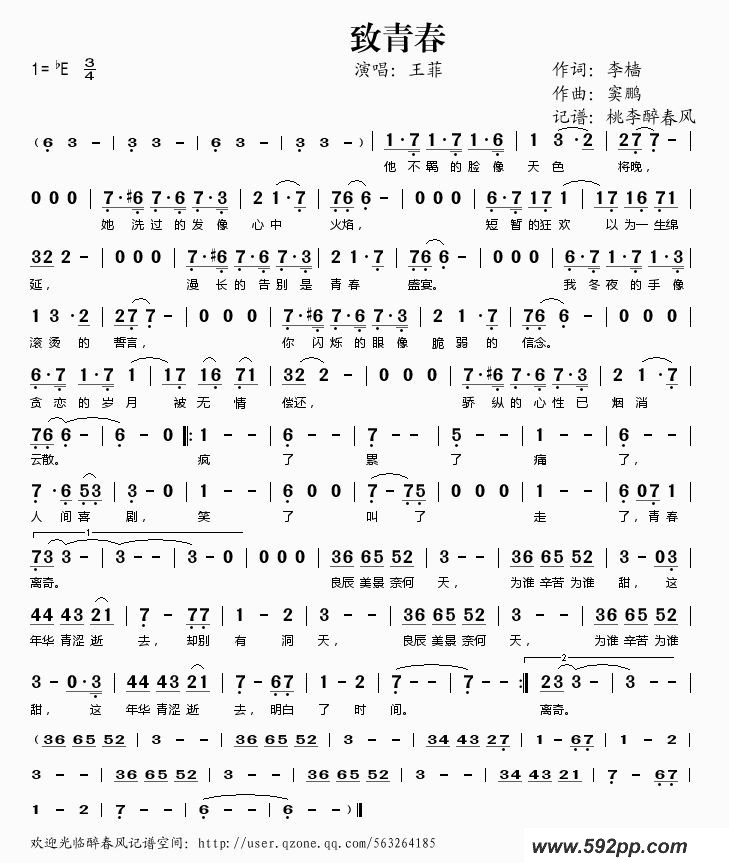 致青春
1=♭E 3/4 演唱：王菲 作词：李樯
作曲：窦鹏
记谱：桃李醉春风
( 6 3 - | 3 3 - | 6 3 - | 3 3 - ) | 1·7 1·7 1·6 | 1 3 ·2 | 27 7 - |
他 不 羁 的 脸 像 天 色 将晚，
0 0 0 | 7·#6 7·6 7·3 | 2 1·7 | 76 6 - | 0 0 0 | 6·7 171 1 | 17 16 71 |
她 洗 过 的 发 像 心 中 火焰， 短 暂 的狂 欢 以 为一 生绵
32 2 - | 0 0 0 | 7·#6 7·6 7·3 | 2 1·7 | 76 6 - | 0 0 0 | 6·7 1·7 1·3 |
延， 漫 长 的 告 别 是 青 春 盛宴。 我 冬 夜 的 手 像
1 3 ·2 | 27 7 - | 0 0 0 | 7·#6 7·6 7·3 | 2 1 ·7 | 76 6 - | 0 0 0 |
滚 烫 的 誓言， 你 闪 烁 的 眼 像 脆 弱 的 信念。
6·7 1·7 1 | 17 16 71 | 32 2 - | 0 0 0 | 7·#6 7·6 7·3 | 2 1 ·7 |
贪 恋 的 岁 月 被 无 情 偿还， 骄 纵 的 心 性 已 烟 消
76 6 - | 6 - 0 ‖: 1 - - | 6 - - | 7 - - | 5 - - | 1 - - | 6 - - |
云散。 疯 了 累 了 痛 了，
7 ·6 53 | 3 - 0 | 1 - - | 6 0 0 | 7 - 75 | 0 0 0 | 1 - - | 6 071 |
人 间 喜 剧， 笑 了 叫 了 走 了，青 春
1
73 3 - | 3 - - | 3 - 0 | 0 0 0 | 36 65 52 | 3 - - | 36 65 52 | 3 - 03 |
离奇。 良辰 美景 奈何 天， 为谁 辛苦 为谁 甜，这
44 43 21 | 7 - 77 | 1 - 2 | 3 - - | 36 65 52 | 3 - - | 36 65 52 |
年华 青涩 逝 去，却别 有 洞 天， 良辰 美景 奈何 天， 为谁 辛苦 为谁
2
3 - 0·3 | 44 43 21 | 7 - 67 | 1 - 2 | 7 - - | 7 - - :‖ 23 3 - | 3 - - |
甜， 这 年华 青涩 逝 去，明白 了 时 间。 离奇。
( 36 65 52 | 3 - - | 36 65 52 | 3 - - | 34 43 27 | 1 - 67 | 1 - 2 |
3 - - | 36 65 52 | 3 - - | 36 65 52 | 3 - - | 34 43 21 | 7 - 67 |
1 - 2 | 7 - - | 6 - - | 6 - - ) ‖
欢迎光临醉春风记谱空间：http://user.qzone.qq.com/563264185
www.592pp.com